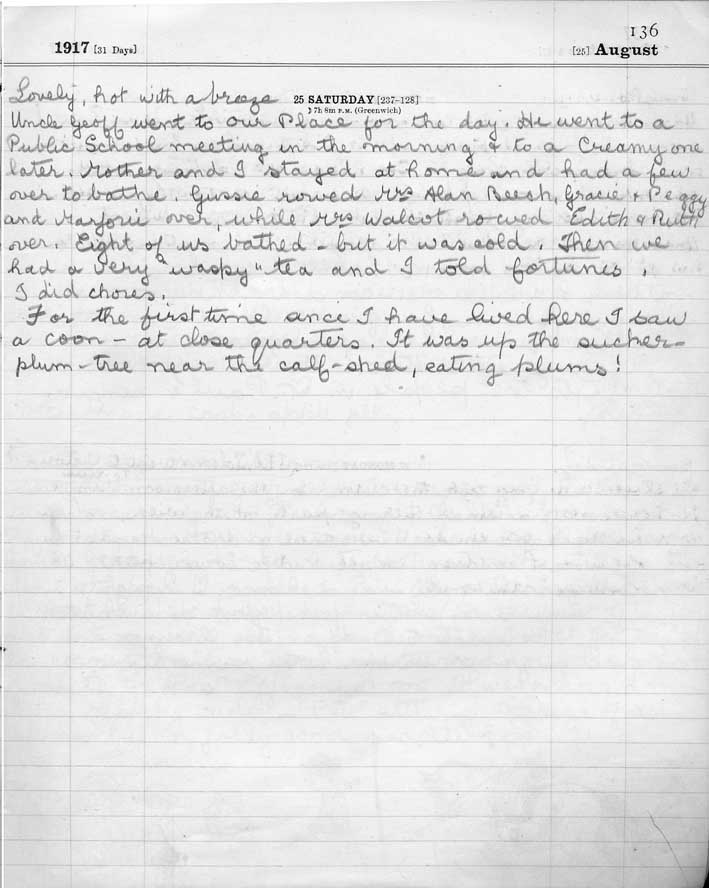 136
1917 [31 Days]
[25] August
Lovely, hot with a breeze
25 SATURDAY [237–128]
☽ 7h 8m P.M. (Greenwich)
Uncle Geoff went to our Place for the day. He went to a
Public School meeting in the morning & to a Creamy one
later. Mother and I stayed at home and had a few
over to bathe. Gussie rowed Mrs Alan Beech, Gracie & Peggy
and Marjorie over, while Mrs Walcot rowed Edith & Ruth
over. Eight of us bathed – but it was cold. Then we
had a very "waspy" tea and I told fortunes.
I did chores.
For the first time since I have lived here I saw
a coon – at close quarters. It was up the sucker-
plum-tree near the calf-shed, eating plums!